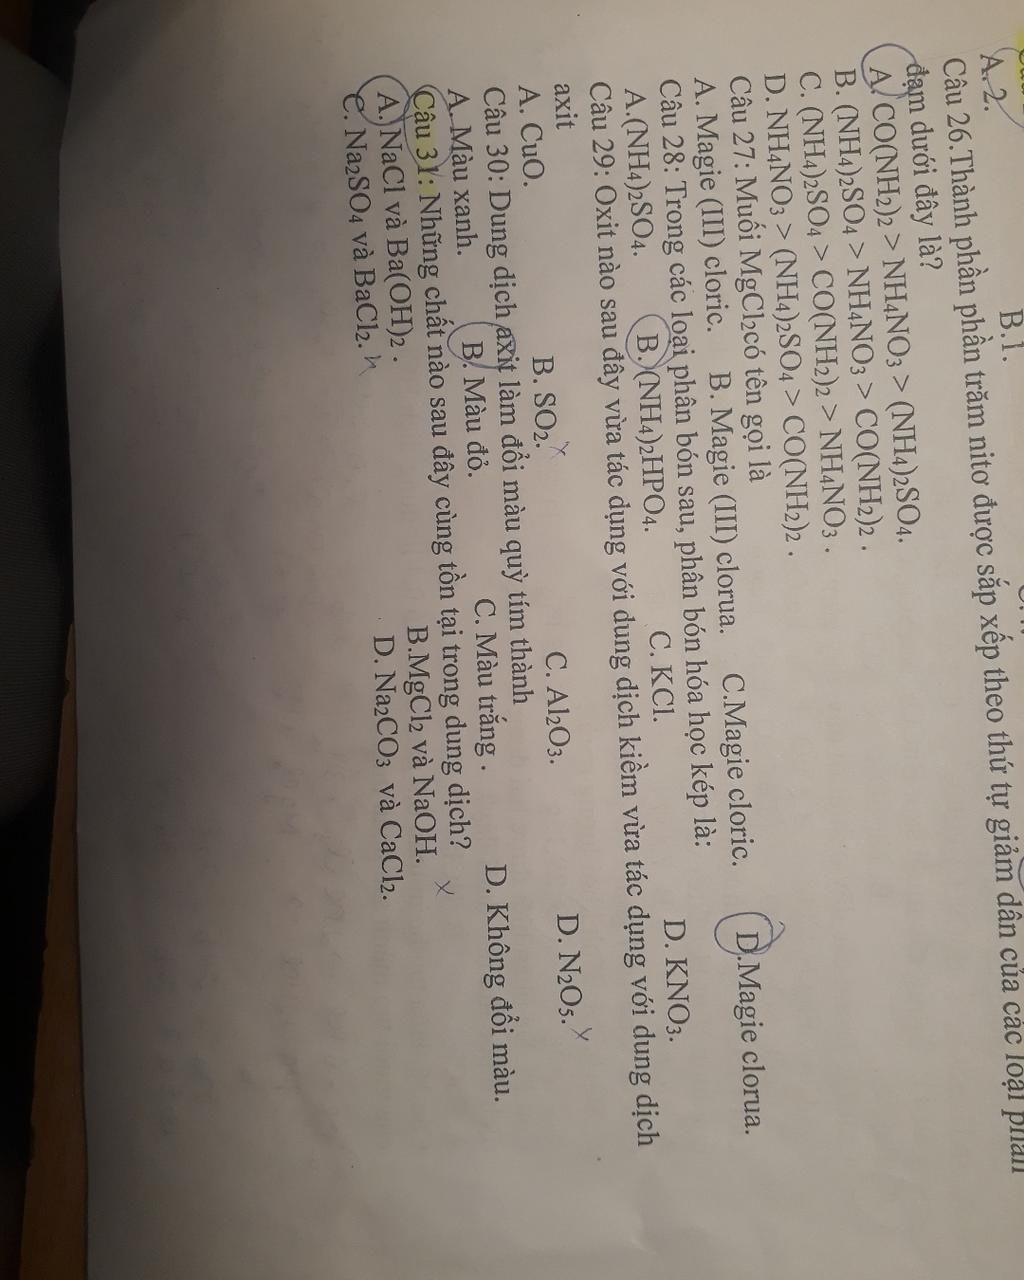 A. 2.
B.1.
Câu 26.Thành phần phần trăm nitơ được sắp xếp theo thứ tự giảm dần của các loại phân
đạm dưới đây là?
A. CO(NH2)2 > NH4NO3 > (NH4)2SO4.
B. (NH4)2SO4 > NH4NO3 > CO(NH2)2 .
C. (NH4)2SO4 > CO(NH2)2 > NH4NO3 .
D. NH4NO3 > (NH4)2SO4 > CO(NH2)2 .
Câu 27: Muối MgCl2có tên gọi là
A. Magie (III) cloric. B. Magie (III) clorua. C.Magie cloric. D.Magie clorua.
Câu 28: Trong các loại phân bón sau, phân bón hóa học kép là:
A.(NH4)2SO4. B. (NH4)2HPO4. C. KCl. D. KNO3.
Câu 29: Oxit nào sau đây vừa tác dụng với dung dịch kiềm vừa tác dụng với dung dịch
axit
A. CuO. B. SO2. x C. Al2O3. D. N2O5. x
Câu 30: Dung dịch axit làm đổi màu quỳ tím thành
A. Màu xanh. B. Màu đỏ. C. Màu trắng . D. Không đổi màu.
Câu 31: Những chất nào sau đây cùng tồn tại trong dung dịch?
A. NaCl và Ba(OH)2 . B.MgCl2 và NaOH. x
C. Na2SO4 và BaCl2. D. Na2CO3 và CaCl2.